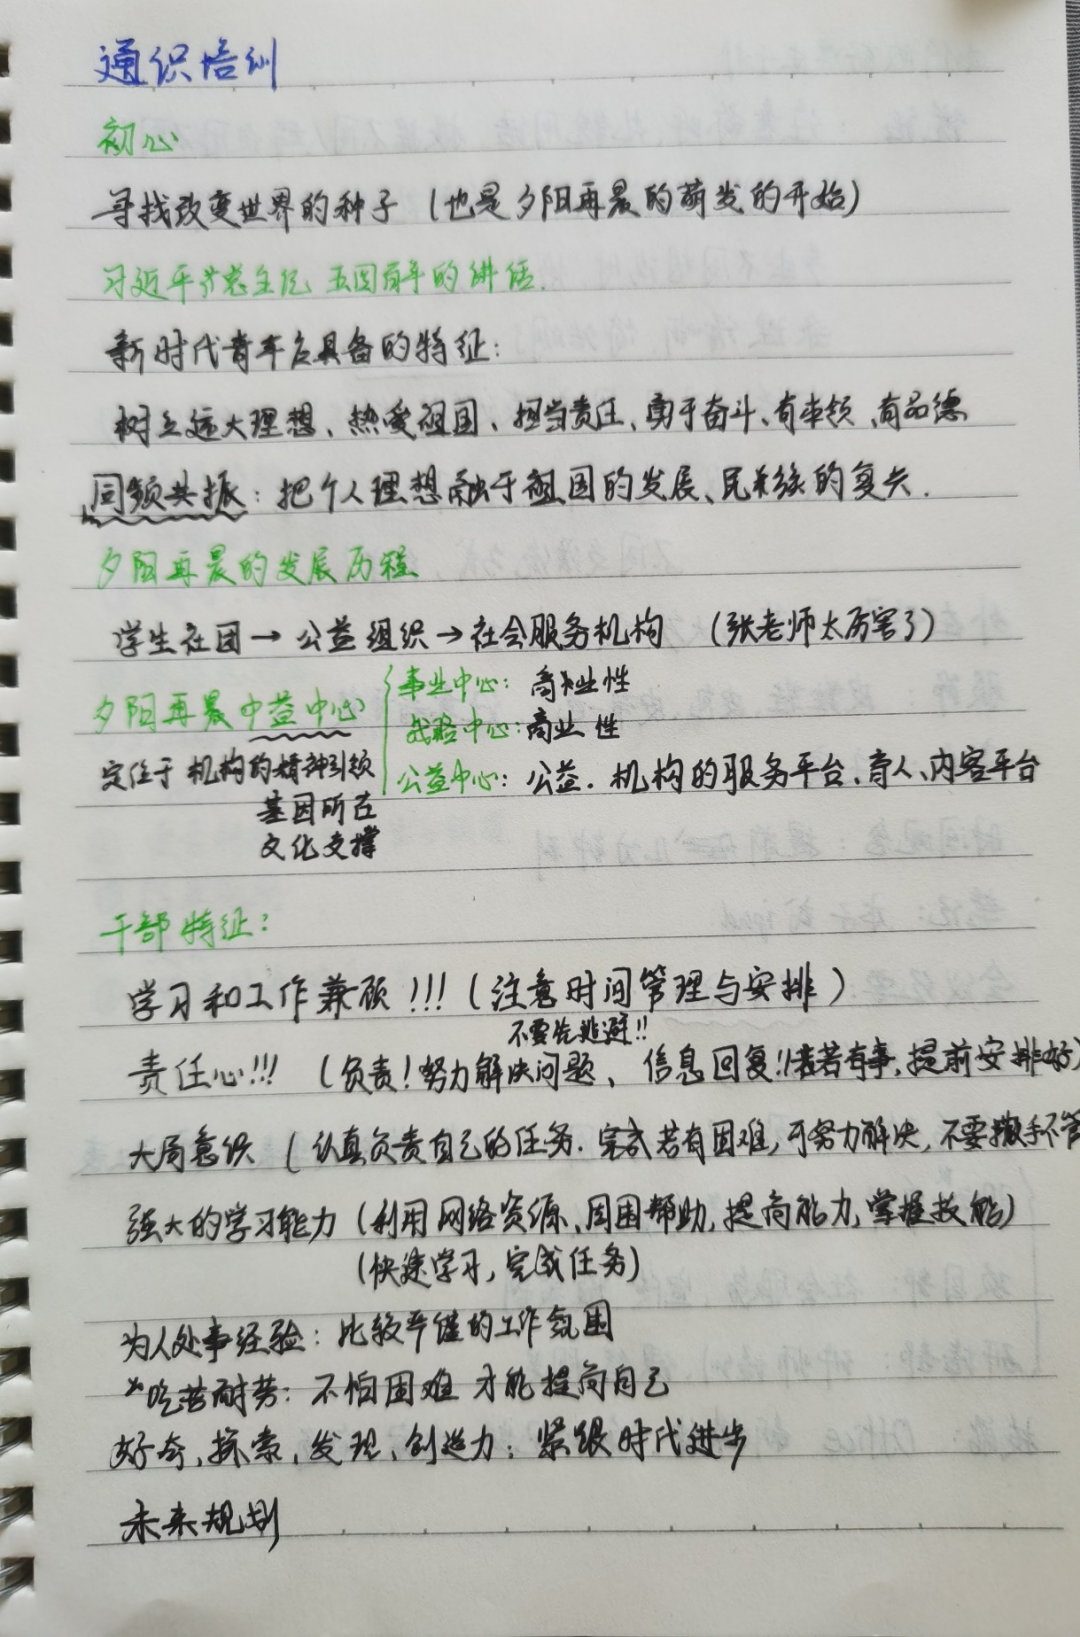 通识培训
初心
寻找改变世界的种子（也是夕阳再晨的萌发的开始）
习近平总 五四百年的讲话.
新时代青年应具备的特征:
树立远大理想、热爱祖国、担当责任、勇于奋斗、有本领、有品德
同频共振: 把个人理想融于祖国的发展、民族的复兴.
夕阳再晨的发展历程
学生社团→公益组织→社会服务机构 （张老师太厉害了）
夕阳再晨中益中心
事业中心: 商业性
战略中心: 商业性
公益中心: 公益. 机构的服务平台、育人、内容平台
定位于 机构的精神引领
基因所在
文化支撑
干部特征:
学习和工作兼顾!!!（注意时间管理与安排）
不要先逃避!!
责任心!!! （负责!努力解决问题、信息回复!!若有事,提前安排好）
大局意识（认真负责自己的任务. 完成若有困难,可努力解决,不要撒手不管
强大的学习能力（利用网络资源、周围帮助,提高能力,掌握技能）
（快速学习,完成任务）
为人处事经验: 比较严谨的工作氛围
吃苦耐劳: 不怕困难才能提高自己
好奇,探索,发现,创造力: 紧跟时代进步
未来规划